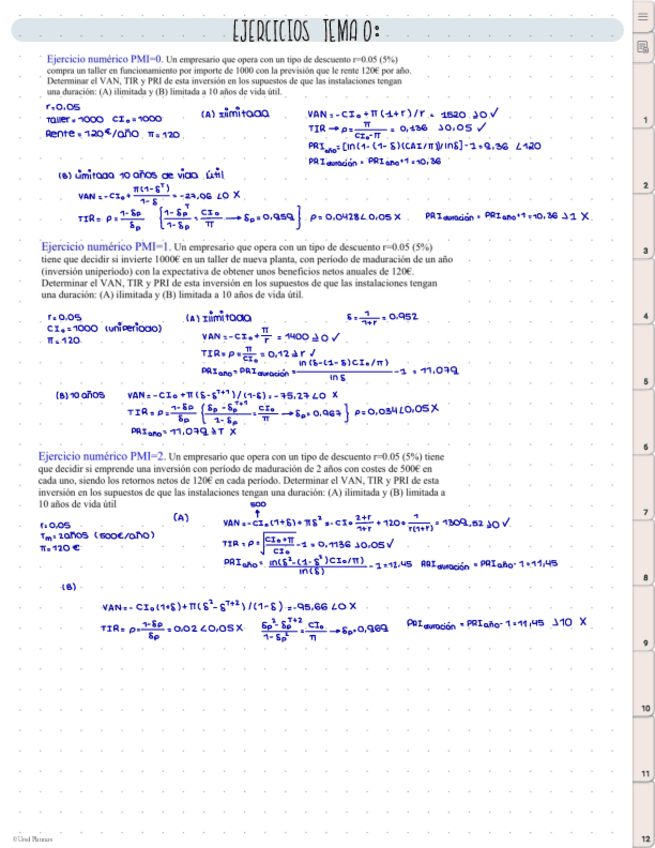 EJERCICIOS TEMA 0:
Ejercicio numérico PMI=0. Un empresario que opera con un tipo de descuento r=0.05 (5%)
compra un taller en funcionamiento por importe de 1000 con la previsión que le rente 120€ por año.
Determinar el VAN, TIR y PRI de esta inversión en los supuestos de que las instalaciones tengan
una duración: (A) ilimitada y (B) limitada a 10 años de vida útil.
r=0.05
Taller=1000 CI₀=1000
Rente=120€/AÑO π=120
(A) Ilimitada
VAN=-CI₀+π(1+r)/r = 1520 ≥0 ✓
TIR → ρ= π/(CI₀-π) = 0,136 ≥0,05 ✓
PRI año=[ln(1-(1-δ)(CAI/π))/lnδ]-1=9,36 <120
PRI duración = PRI año+1=10,36
(B) Limitada 10 años de vida útil
VAN=-CI₀+ π(1-δᵀ)/(1-δ) =-27,06 <0 X
TIR= ρ= (1-δρ)/δρ {(1-δρᵀ)/(1-δρ) = CI₀/π → δρ=0,959} ρ=0,0428<0,05 X PRI duración = PRI año+1=10,36 ≥1 X
Ejercicio numérico PMI=1. Un empresario que opera con un tipo de descuento r=0.05 (5%)
tiene que decidir si invierte 1000€ en un taller de nueva planta, con período de maduración de un año
(inversión uniperíodo) con la expectativa de obtener unos beneficios netos anuales de 120€.
Determinar el VAN, TIR y PRI de esta inversión en los supuestos de que las instalaciones tengan
una duración: (A) ilimitada y (B) limitada a 10 años de vida útil.
r=0.05
CI₀=1000 (uniperiodo)
π=120
(A) Ilimitada δ= 1/(1+r) = 0.952
VAN=-CI₀+ π/r = 1400 ≥0 ✓
TIR=ρ= π/CI₀ = 0,12 ≥ r ✓
PRI año= PRI duración= ln(δ-(1-δ)CI₀/π)/lnδ -1 = 11,079
(B) 10 años VAN=-CI₀+π(δ-δᵀ⁺¹)/(1-δ)=-75,27<0 X
TIR= ρ= (1-δρ)/δρ {(δρ-δρᵀ⁺¹)/(1-δρ) = CI₀/π → δρ=0,967} ρ=0,034<0,05 X
PRI año=11,079 ≥T X
Ejercicio numérico PMI=2. Un empresario que opera con un tipo de descuento r=0.05 (5%) tiene
que decidir si emprende una inversión con período de maduración de 2 años con costes de 500€ en
cada uno, siendo los retornos netos de 120€ en cada período. Determinar el VAN, TIR y PRI de esta
inversión en los supuestos de que las instalaciones tengan una duración: (A) ilimitada y (B) limitada a
10 años de vida útil
r=0,05
Tm=2años (500€/año)
π=120 €
(A)
500
↑
VAN=-CI₀(1+δ)+πδ² =-CI₀ (2+r)/(1+r) +120· 1/(r(1+r)) =1309,52 ≥0 ✓
TIR=ρ=√((CI₀+π)/CI₀) -1=0,1136 ≥0,05 ✓
PRI año= ln(δ²-(1-δ²)CI₀/π)/ln(δ) -1=12.45 PRI duración =PRI año-1=11,45
(B)
VAN=-CI₀(1+δ)+π(δ²-δᵀ⁺²)/(1-δ)=-95,66 <0 X
TIR= ρ= (1-δρ)/δρ = 0.02 <0,05 X (δρ²-δρᵀ⁺²)/(1-δρ²) = CI₀/π → δρ=0,969 PRI duración = PRI año-1=11,45 ≥10 X
1
2
3
4
5
6
7
8
9
10
11
12